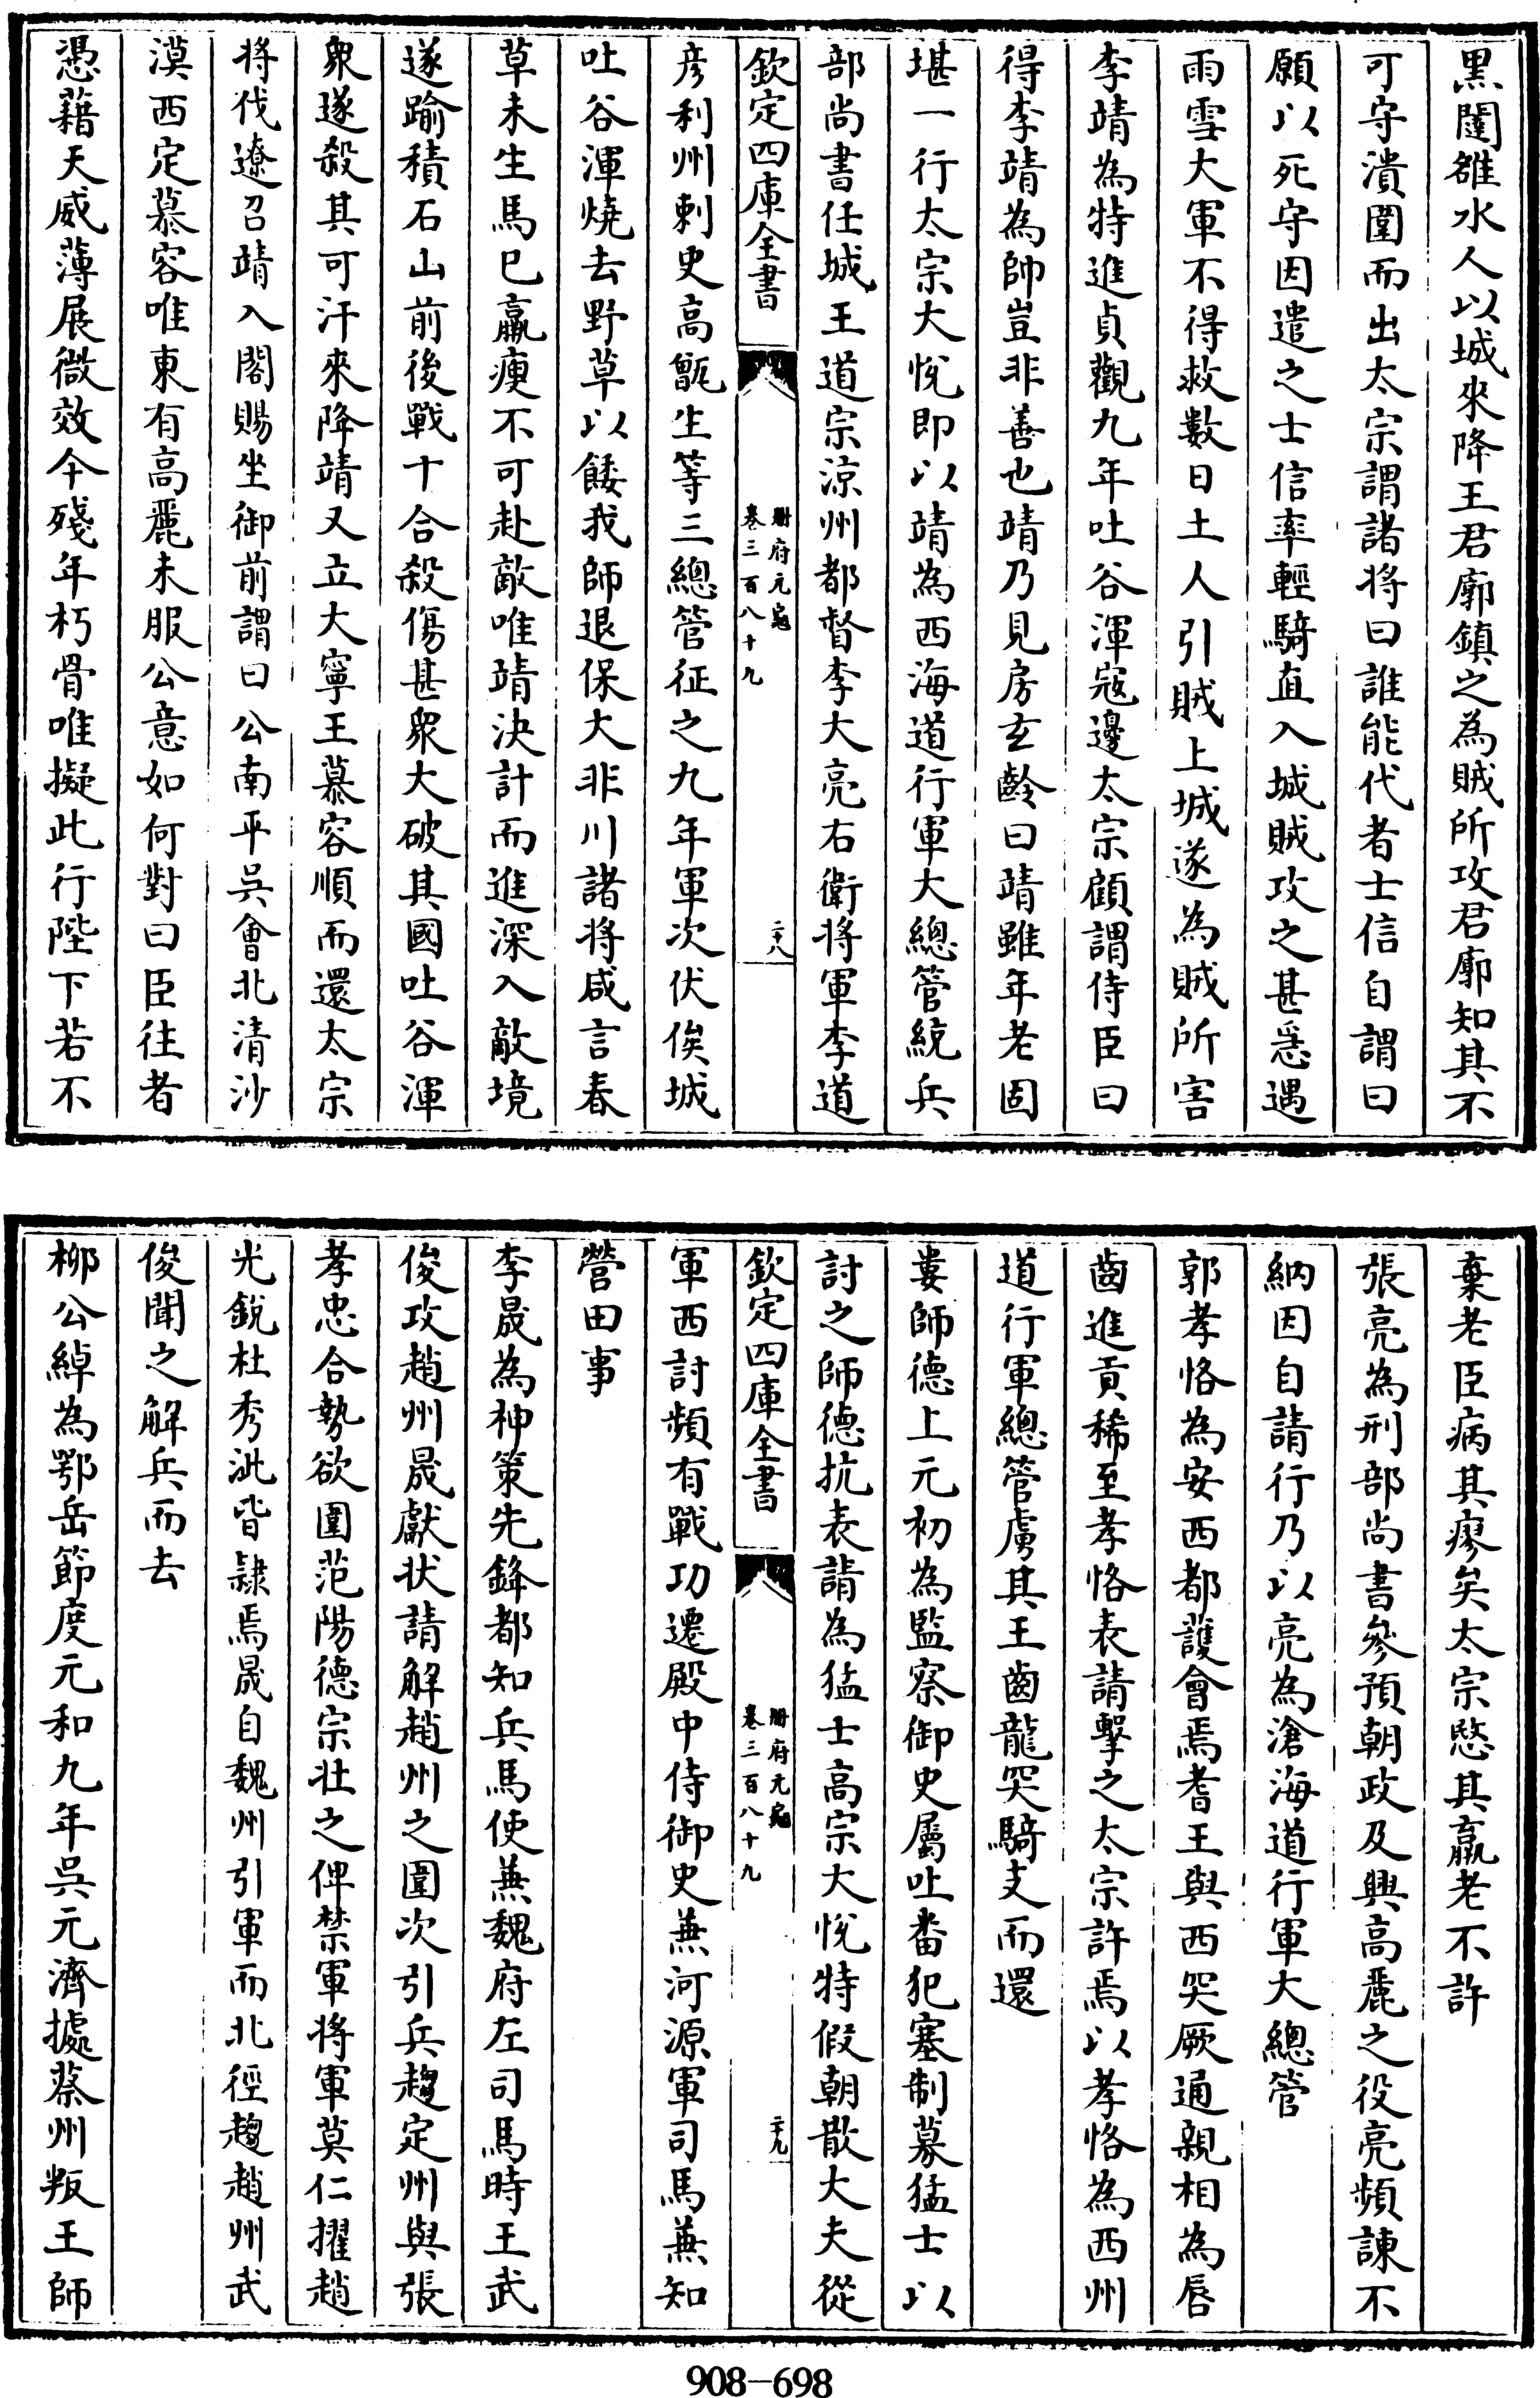 黒闥雒水人以城來降王君廓鎮之為賊所攻君廓知其不
可守潰圍而出太宗謂諸将曰誰能代者士信自謂曰
願以死守因遣之士信率輕騎直入城賊攻之甚急遇
雨雪大軍不得救數日土人引賊上城遂為賊所害
李靖為特進貞觀九年吐谷渾寇邊太宗顧謂侍臣曰
得李靖為帥豈非善也靖乃見房玄齡曰靖雖年老固
堪一行太宗大悅即以靖為西海道行軍大總管統兵
部尚書任城王道宗涼州都督李大亮右衛将軍李道
欽定四庫全書
冊府元龜
卷三百八十九
二十八
彦利州刺史高甑生等三總管征之九年軍次伏俟城
吐谷渾燒去野草以餧我師退保大非川諸将咸言春
草未生馬已羸瘦不可赴敵唯靖決計而進深入敵境
遂踰積石山前後戰十合殺傷甚衆大破其國吐谷渾
衆遂殺其可汗來降靖又立大寧王慕容順而還太宗
将伐遼召靖入閣賜坐御前謂曰公南平吳會北清沙
漠西定慕容唯東有高麗未服公意如何對曰臣往者
憑藉天威薄展微效今殘年朽骨唯擬此行陛下若不
棄老臣病其瘳矣太宗愍其羸老不許
張亮為刑部尚書參預朝政及興高麗之役亮頻諫不
納因自請行乃以亮為滄海道行軍大總管
郭孝恪為安西都護會焉耆王與西突厥通親相為唇
齒進貢稀至孝恪表請擊之太宗許焉以孝恪為西州
道行軍總管虜其王齒龍突騎支而還
婁師德上元初為監察御史屬吐番犯塞制募猛士以
討之師德抗表請為猛士高宗大悅特假朝散大夫從
欽定四庫全書
冊府元龜
卷三百八十九
二十九
軍西討頻有戰功遷殿中侍御史兼河源軍司馬兼知
營田事
李晟為神策先鋒都知兵馬使兼魏府左司馬時王武
俊攻趙州晟獻狀請解趙州之圍次引兵趨定州與張
孝忠合勢欲圍范陽德宗壮之俾禁軍将軍莫仁擢趙
光銳杜秀泚皆隸焉晟自魏州引軍而北徑趨趙州武
俊聞之解兵而去
柳公綽為鄂岳節度元和九年吳元濟據蔡州叛王師
908-698